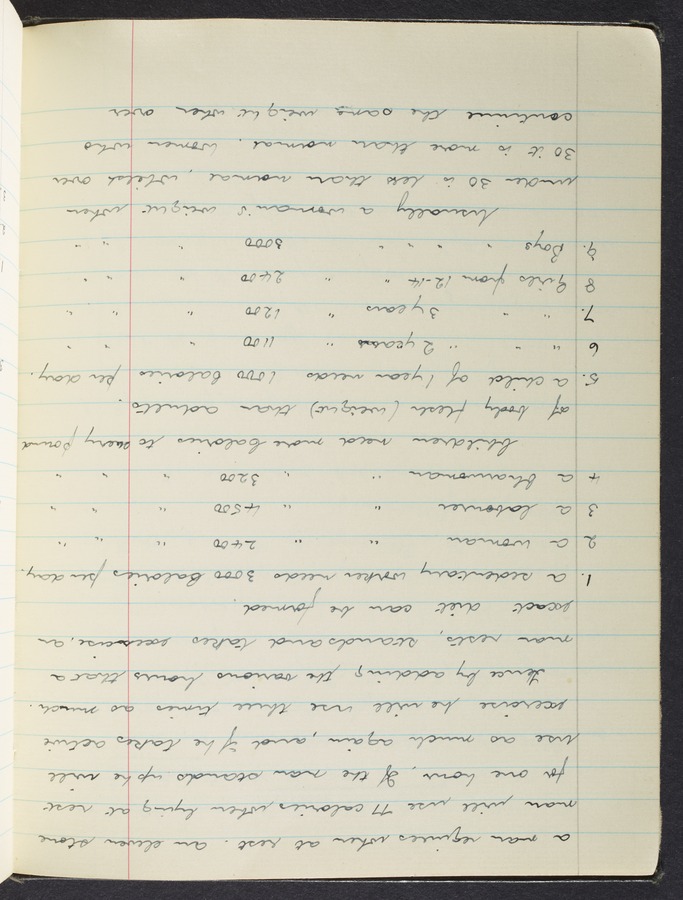 a man requires when at rest. an eleven stone
man will use 77 calories when lying at rest
for one hour. If the man stands up he will
use as much again, and if he takes active
exercise he will use three times as much.
Hence by adding the various hours that a
man rests, stands and takes exercise, an
exact diet can be formed.
1. a sedentary worker needs 3000 Calories per day.
2 a woman " " 2400 " " "
3 a labourer " " 4500 " " "
4 a " " 3200 " " "
Children need more Calories to every pound
of body flesh (weight) than adults.
5. a child of 1 year needs 1000 Calories per day.
6 " " " 2 years " 1100 " " "
7. " " 3 years " 1200 " " "
8 Girls from 12-14 " " 2400 " " "
9. Boys " " " " 3000 " " "
Usually a woman's weight when
under 30 is less than normal, whilst over
30 it is more than normal. Women who
continue the same weight when over